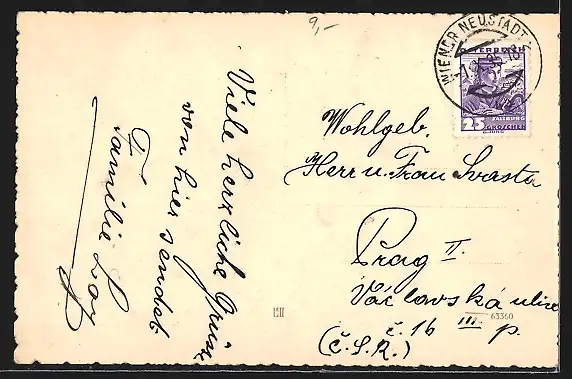 9,-
WIENER NEUSTADT
ÖSTERREICH
SALZBURG
25 GROSCHEN
Viele herzliche Grüsse
von hier sendet
Familie
Wohlgeb.
Herr u. Frau Svasta
Prag II.
Václavská ulice
č. 16 III p.
(Č.S.R.)
63360